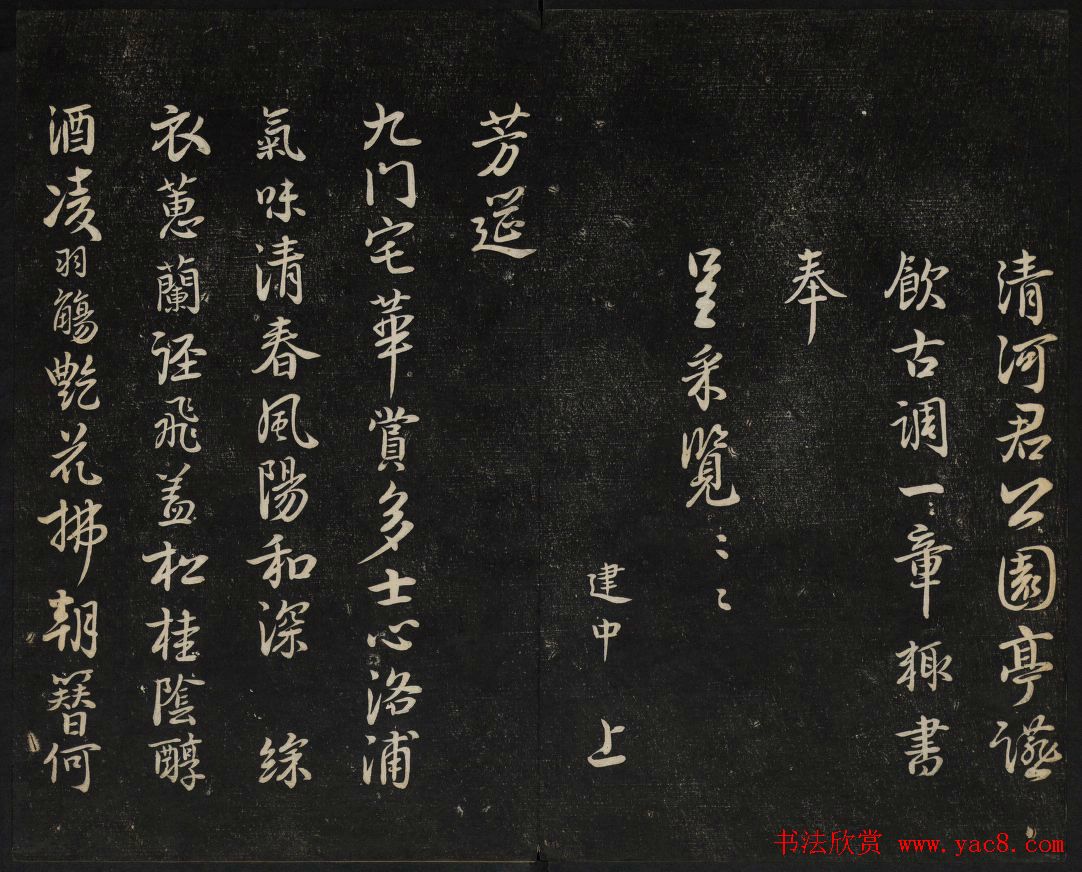 清河君公園亭讌
飲古調一章輙書
奉
呈采覽〻〻
建中 上
芳
九門宅華賞多士心洛浦
氣味清春風陽和深
衣蕙蘭徑飛盖松桂陰醇
酒凌羽觴艷花拂朝簪何
书法欣赏 www.yac8.com